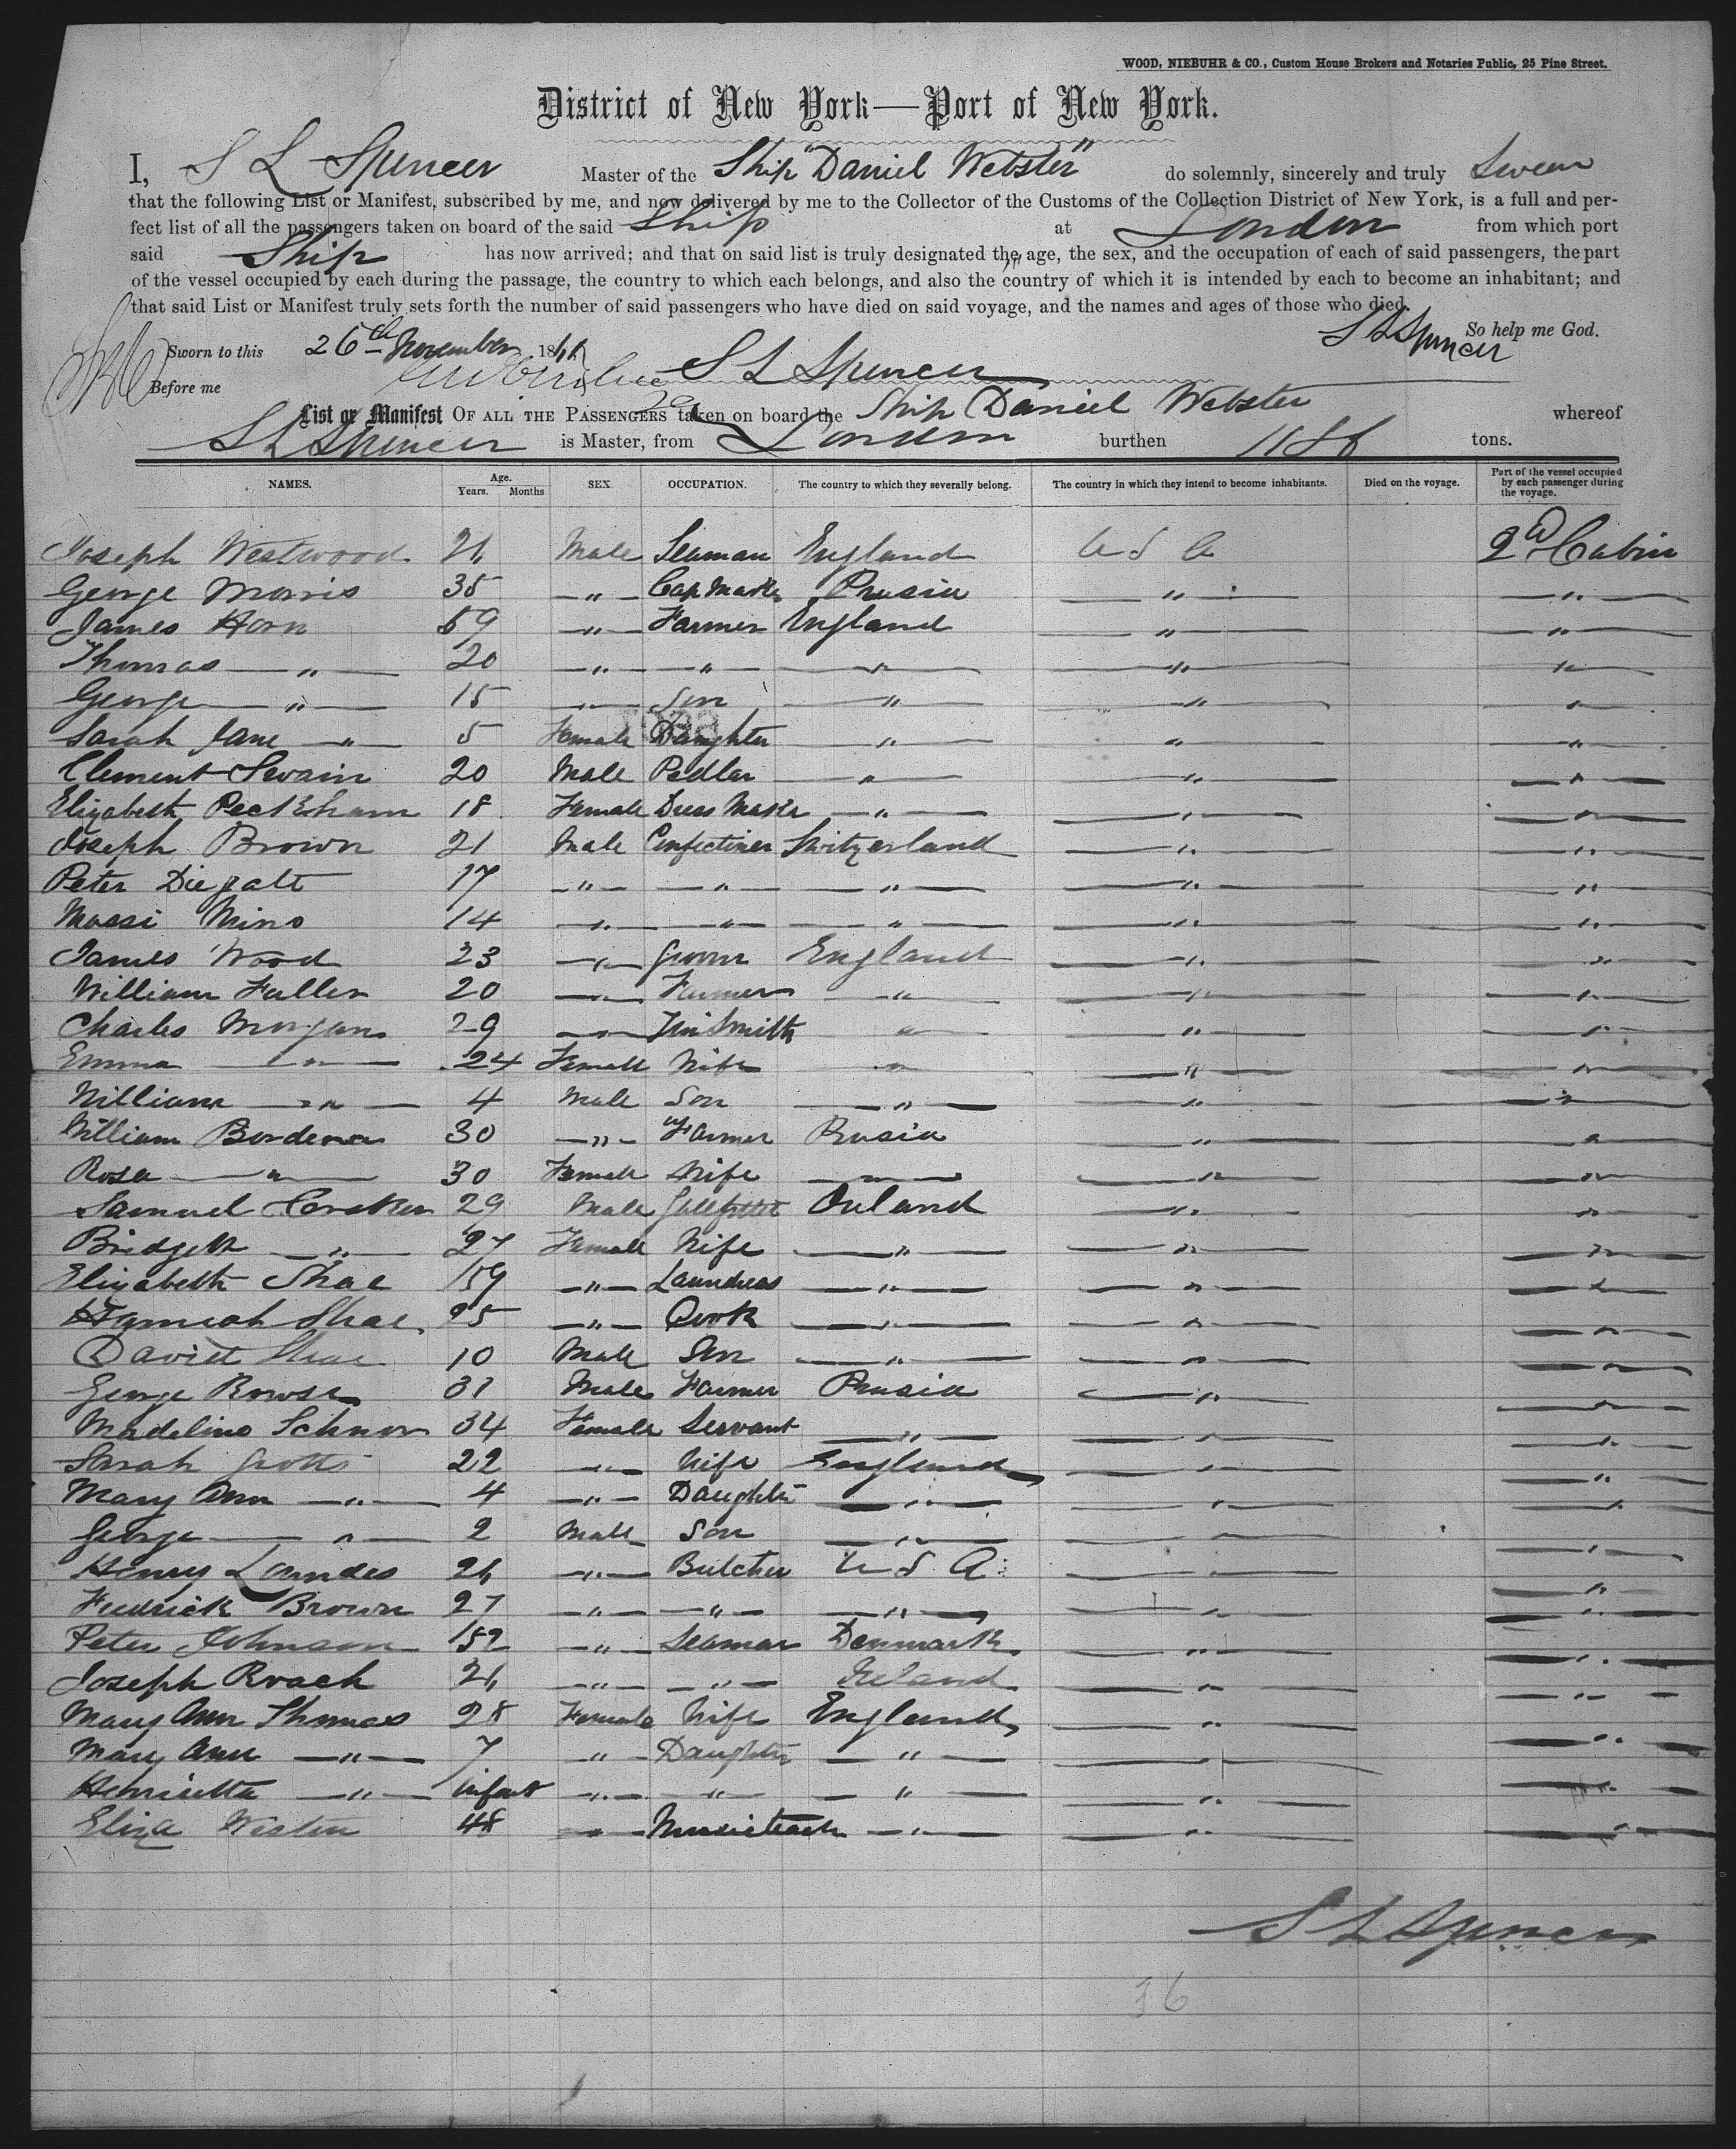 WOOD, NIEBUHR & CO., Custom House Brokers and Notaries Public, 25 Pine Street.
District of New York—Port of New York.
I, S L Spencer Master of the Ship "Daniel Webster" do solemnly, sincerely and truly Swear
that the following List or Manifest, subscribed by me, and now delivered by me to the Collector of the Customs of the Collection District of New York, is a full and per-
fect list of all the passengers taken on board of the said Ship at London from which port
said Ship has now arrived; and that on said list is truly designated the age, the sex, and the occupation of each of said passengers, the part
of the vessel occupied by each during the passage, the country to which each belongs, and also the country of which it is intended by each to become an inhabitant; and
that said List or Manifest truly sets forth the number of said passengers who have died on said voyage, and the names and ages of those who died.
S L Spencer So help me God.
Sworn to this 26th November 186
Before me S L Spencer
List or Manifest OF ALL THE PASSENGERS taken on board the Ship Daniel Webster whereof
S L Spencer is Master, from London burthen tons.
NAMES. Age. Years. Months SEX. OCCUPATION. The country to which they severally belong. The country in which they intend to become inhabitants. Died on the voyage. Part of the vessel occupied by each passenger during the voyage.
Joseph Westwood 26 Male Seaman England U S A 2d Cabin
George Morris 35 " Cap Maker Prusia " "
James Horn 59 " Farmer England " "
Thomas " 20 " " " " "
George " 15 " Son " " "
Sarah Jane " 5 Female Daughter " " "
Clement Swain 20 Male Pedlar " " "
Elizabeth Peckham 18 Female Dress Maker " " "
Joseph Brown 21 Male Confectiner Switzerland " "
Peter 17 " " " " "
Mino 14 " " " " "
James Wood 23 " Groom England " "
William Fuller 20 " Farmer " " "
Charles Morgan 29 " Tin Smith " " "
Emma " 24 Female Wife " " "
William " 4 Male Son " " "
William 30 " Farmer Prusia " "
Rosa " 30 Female Wife " " "
Samuel 29 Male " "
Bridgett " 27 Female Wife " " "
Elizabeth Shae 59 " Laundress " " "
Hannah Shae 25 " Cook " " "
David Shae 10 Male Son " " "
George 31 Male Farmer Prusia " "
Madeline 34 Female Servant " " "
Sarah 22 " Wife England " "
Mary Ann " 4 " Daughter " " "
George " 2 Male Son " " "
Henry Landes 26 " Butcher U S A " "
Fredrick Brown 27 " " " " "
Peter Johnson 52 " Seaman Denmark " "
Joseph Roach 26 " " Ireland " "
Mary Ann Thomas 28 Female Wife England " "
Mary Ann " 7 " Daughter " " "
Henrietta " infant " " " " "
Eliza 48 " Musicteach " " "
S L Spencer
36